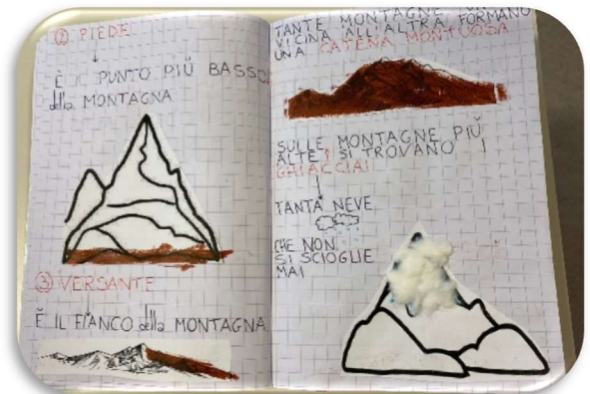 ② PIEDE
È IL PUNTO PIÙ BASSO
della MONTAGNA
③ VERSANTE
È IL FIANCO della MONTAGNA
TANTE MONTAGNE
VICINA ALL'ALTRA FORMANO
UNA CATENA MONTUOSA
SULLE MONTAGNE PIÙ
ALTE SI TROVANO I
GHIACCIAI
TANTA NEVE
CHE NON
SI SCIOGLIE
MAI